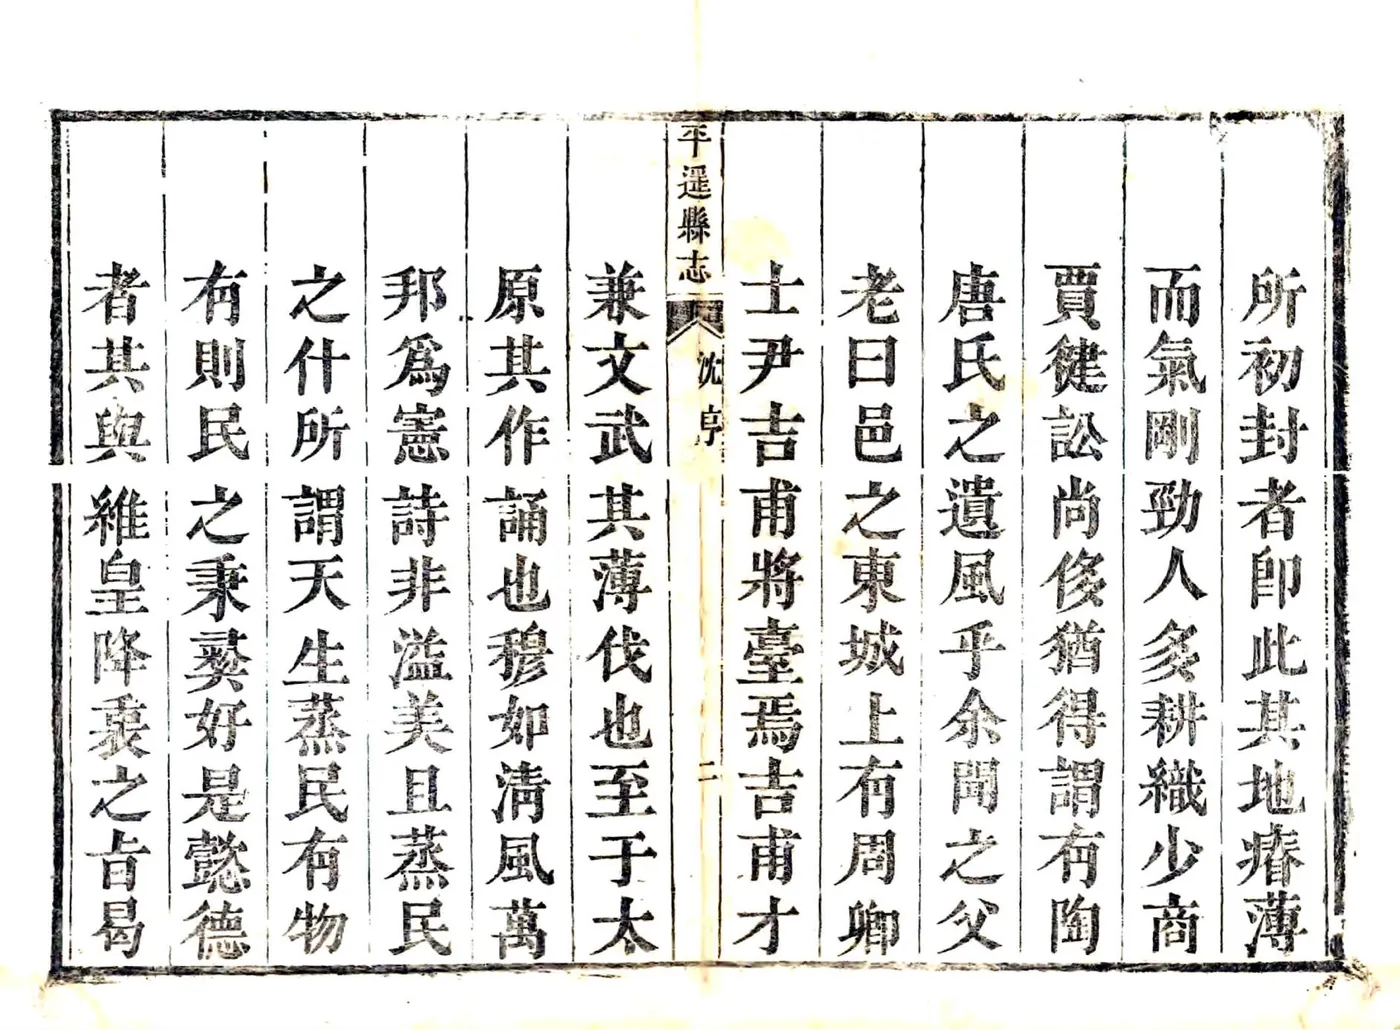 所初封者卽此其地瘠薄
而氣剛勁人多耕織少商
賈健訟尚侈猶得謂有陶
唐氏之遺風乎余聞之父
老曰邑之東城上有周卿
士尹吉甫將臺焉吉甫才
平遥縣志
沈序
二
兼文武其薄伐也至于太
原其作誦也穆如淸風萬
邦爲憲詩非濫美且蒸民
之什所謂天生蒸民有物
有則民之秉彝好是懿德
者其與維皇降衷之旨曷